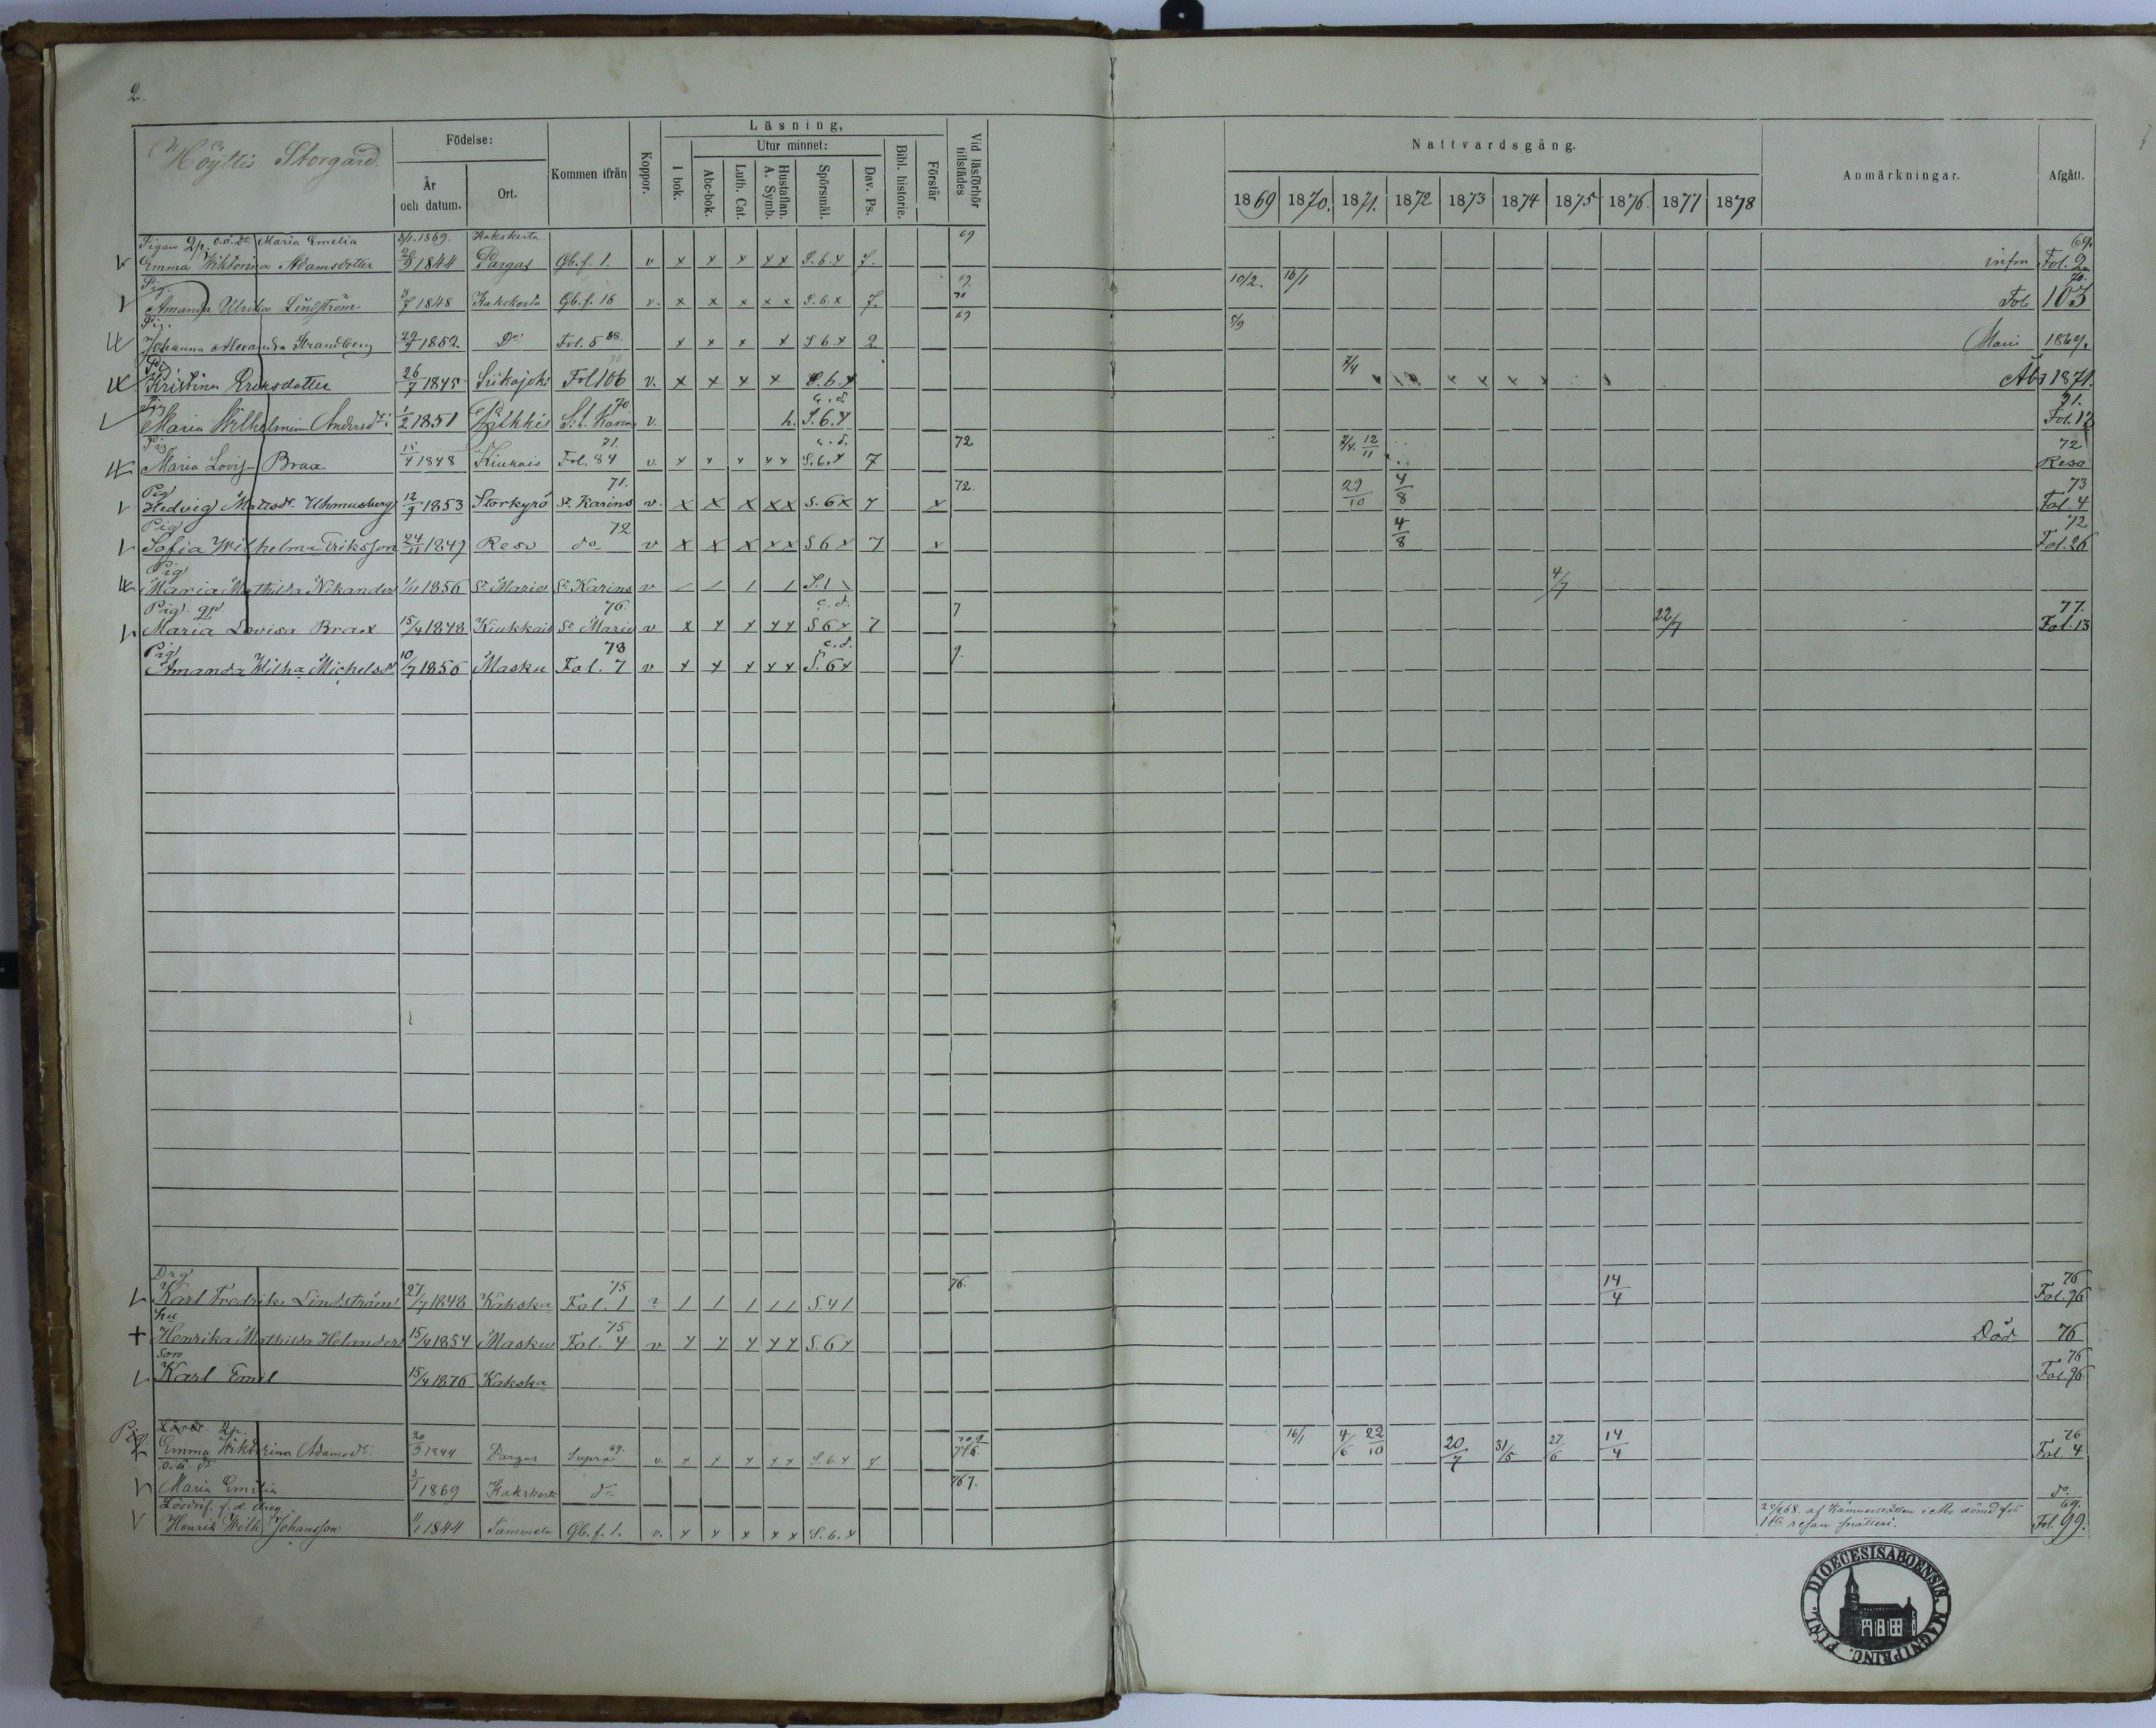 2.
Höyttis Storgård
Födelse:
År och datum.
Ort.
Kommen ifrån
Koppor.
Läsning,
I bok.
Utur minnet:
Abc-bok.
Luth. Cat.
Hustaflan. A. Symb.
Spörsmål.
Dav. Ps.
Bibl. historie.
Förstår
Vid läsförhör tillstädes
Nattvardsgång.
1869 1870. 1871. 1872 1873 1874 1875 1876 1877 1878
Anmärkningar.
Afgått.
Pigan 2p. o.ä. dr. Maria Emelia 5/1. 1869. Kakskerta 69 69.
Emma Wiktorina Adamsdotter 1844 Pargas Gb. f. 1. v x x x x x S. 6. x 7. infra Fol. 2
Pig. 69. 10/2. 16/1 70.
Amanda Ulrika Lindström 1848 Kakskerta Gb. f. 16 v. x x x x x S. 6. x 7. 70 Fol. 103
Pig. 69 5/9
Johanna Alexandra Strandberg 29/9 1852 Do Fol. 5 68. x x x x S 6 x 2 Marie 1869.
Pig. 70 7/4
Kristina Eriksdotter 26/7 1845 Siikajoki Fol 106 v. x x x x S. 6. x Åbo 1871.
Pig 70 c. d. 71.
Maria Wilhelmina Andersdr 1/2 1851 Piikkis S:t Karins v. h. S. 6. x Fol. 12
Pig 71. c. d. 72 7/4. 12/11 72
Maria Lovisa Brax 15/4 1848 Kiukais Fol. 84 v. x x x x x S. 6. x 7 Reso
Pig 71. 72. 29/10 4/8 73
Hedvig Mattsdr. 12/7 1853 Storkyrö St Karins v. x x x x x S. 6 x 7 x Fol. 4
Pig 72 4/8 72
Sofia Wilhelma Eriksson 24/11 1849 Reso do v x x x x x S 6 x 7 x Fol. 26
Pig 4/7
Maria Mathilda Nikander 1/11 1856 St Marie St Karins v / / / / S. 1
Pig. gp 76. c. d. 7 22/7 77.
Maria Lovisa Brax 15/4 1848 Kiukkais St Marie v x x x x x S 6 x 7 Fol. 13
Pig 78 c. d. 9.
Amanda Wilha Michelsdr 10/7 1856 Masku Fol. 7 v x x x x x S. 6 x
Drg 75 76. 14/4 76
Karl Fredrik Lindström 27/7 1848 Kakska Fol. 1 ? / / / / / S. 4 1 Fol. 96
hu 75
Henrika Mathilda Helander 15/4 1854 Masku Fol. 4 v x x x x x S. 6 x Död 76
Son 76
Karl Emil 15/4 1876 Kakska Fol. 96
Pig 2p. 69. 16/1 4/6 22/10 20/7 31/5 27/6 14/4 76
Emma Wiktorina Adamsdr. 1844 Pargas Supra v. x x x x x S. 6. x 7 Fol. 4
o. ä. dr 767.
Maria Emilia 5/1 1869 Kakskerta do do
Lösdrif. f. d. dreng 69.
Henrik Wilh. Johansson 1844 Tammela Gb. f. 1. v. x x x x x S. 6. x af Kämnersrätten i Åbo dömd för 1sta resan snatteri. Fol. 99.
FINL. DIOECESIS ABOENSIS. MAGNI PRINC.